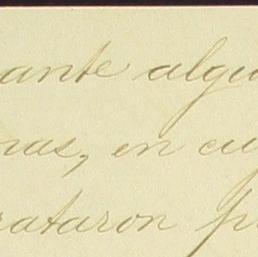 ante algu
ras, en cu
rataron p